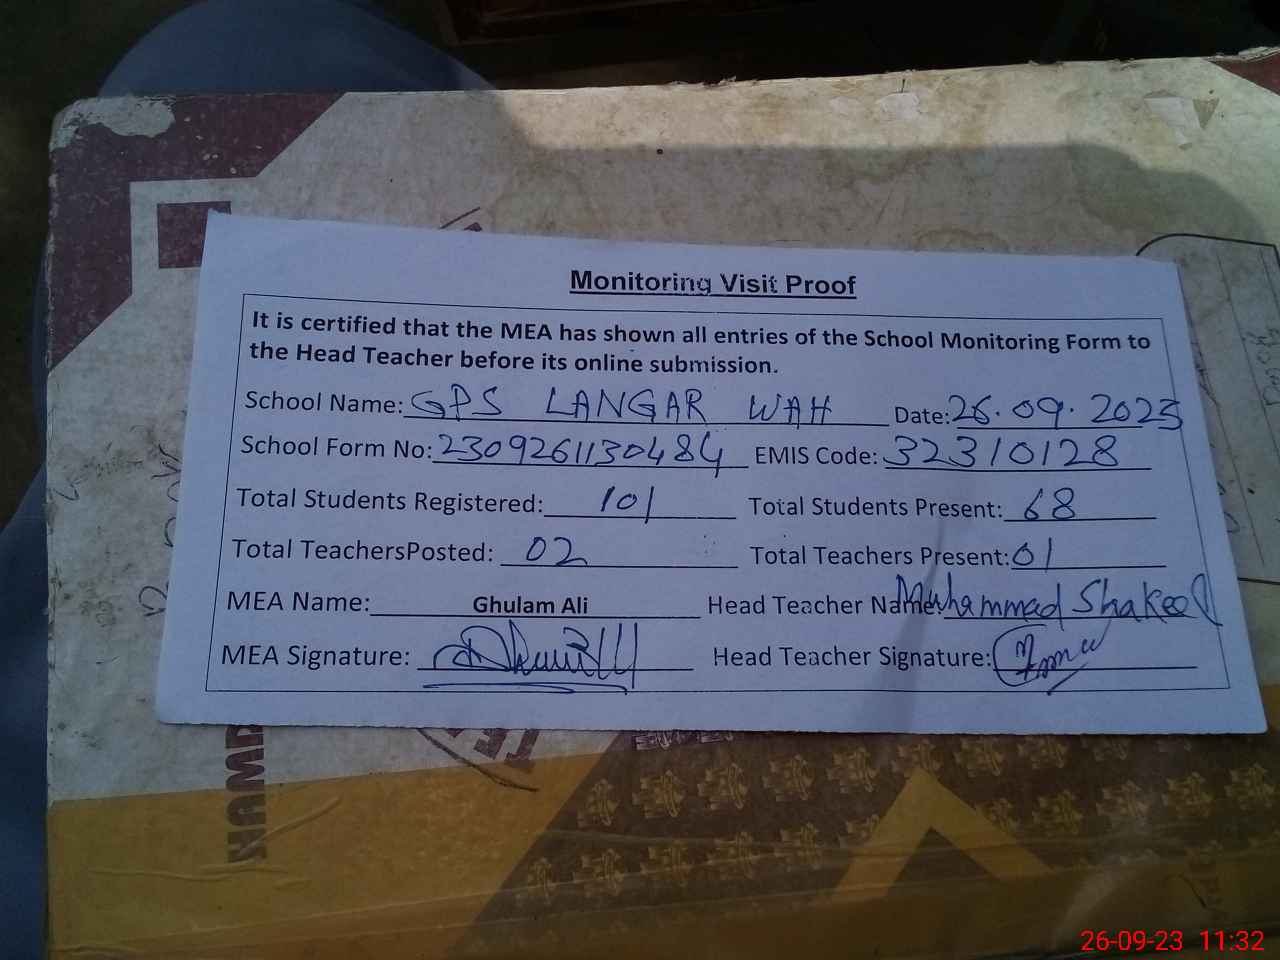 Monitoring Visit Proof
It is certified that the MEA has shown all entries of the School Monitoring Form to
the Head Teacher before its online submission.
School Name: GPS LANGAR WAH Date: 26.09.2023
School Form No: 2309261130484 EMIS Code: 32310128
Total Students Registered: 101 Total Students Present: 68
Total TeachersPosted: 02 Total Teachers Present: 01
MEA Name: Ghulam Ali Head Teacher Name: Muhammad Shakeel
MEA Signature: Head Teacher Signature:
26-09-23 11:32